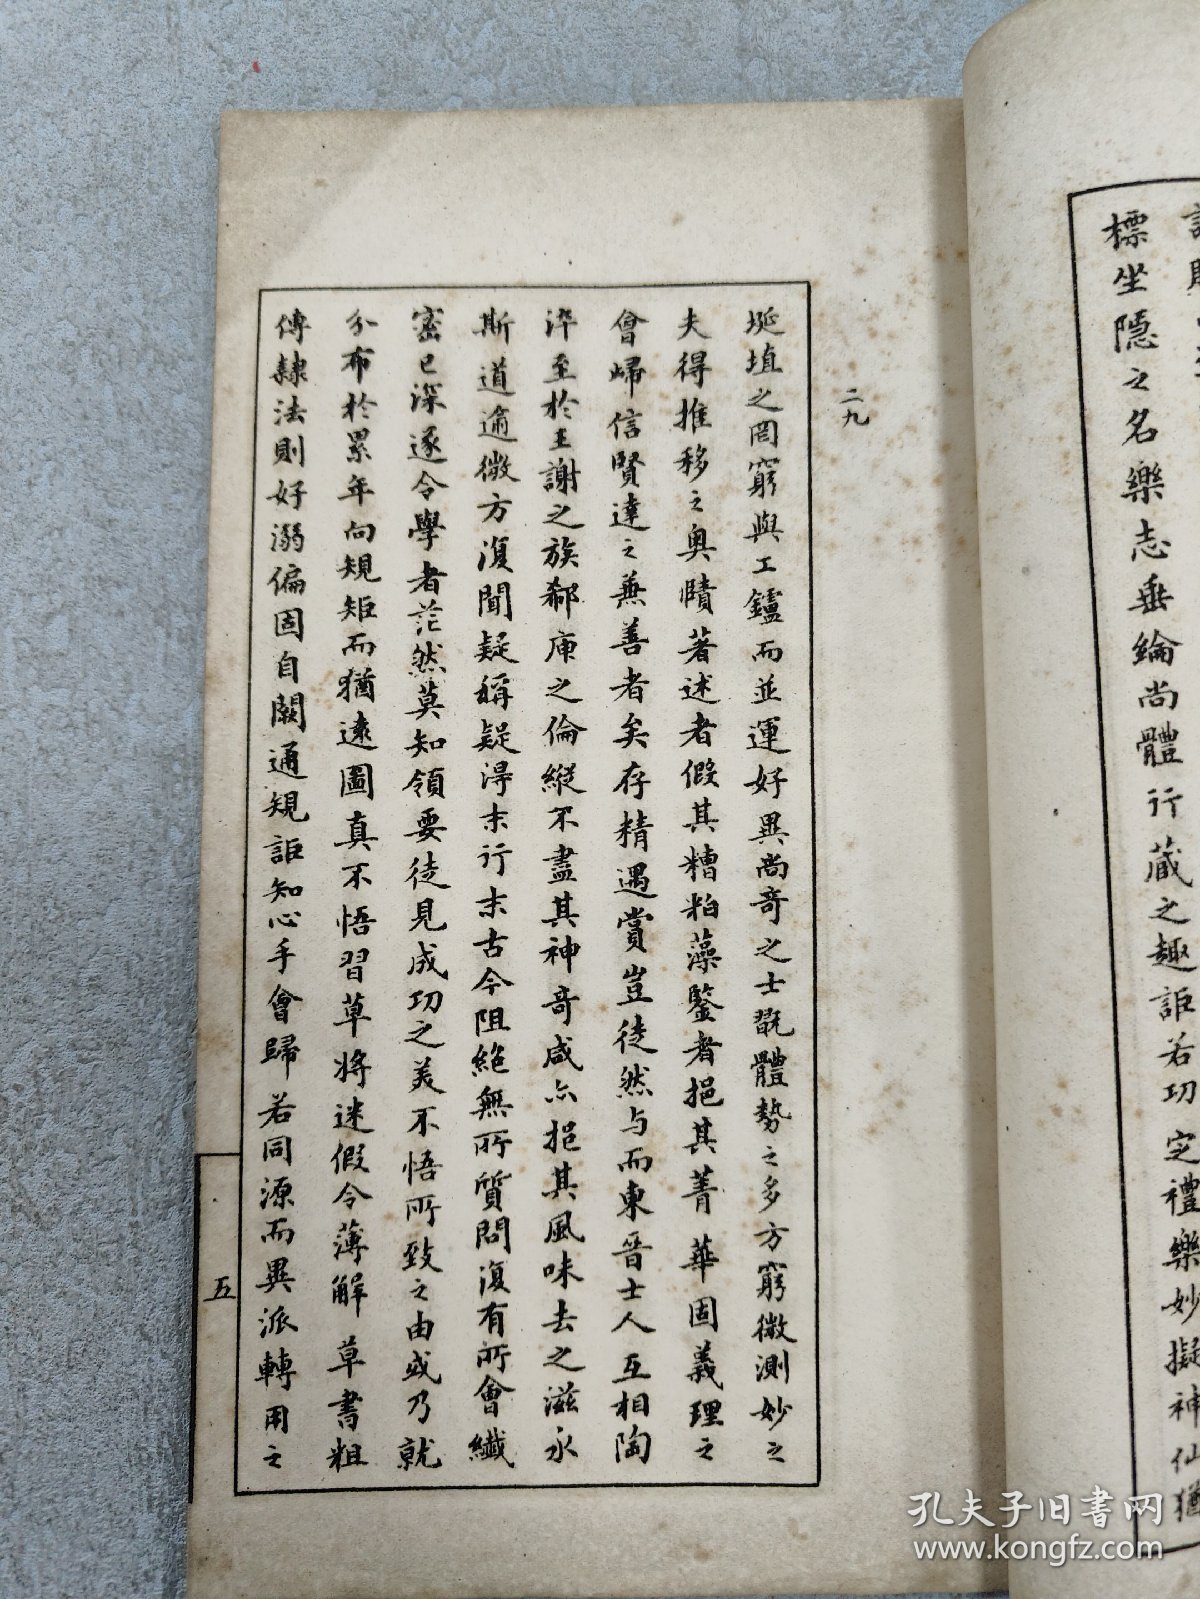 標坐隱之名樂志垂綸尚體行藏之趣詎若功定禮樂妙擬神仙猶
二九
埏埴之罔窮與工鑪而並運好異尚奇之士翫體勢之多方窮微測妙之
夫得推移之奧賾著述者假其糟粕藻鑒者挹其菁華固義理之
會歸信賢達之兼善者矣存精遇賞豈徒然与而東晉士人互相陶
淬至於王謝之族郗庾之倫縱不盡其神奇咸亦挹其風味去之滋永
斯道逾微方復聞疑稱疑得末行末古今阻絕無所質問復有所會緘
密已深遂令學者茫然莫知領要徒見成功之美不悟所致之由或乃就
分布於累年向規矩而猶遠圖真不悟習草將迷假令薄解草書粗
傳隸法則好溺偏固自闕通規詎知心手會歸若同源而異派轉用之
五
孔夫子旧书网
www.kongfz.com